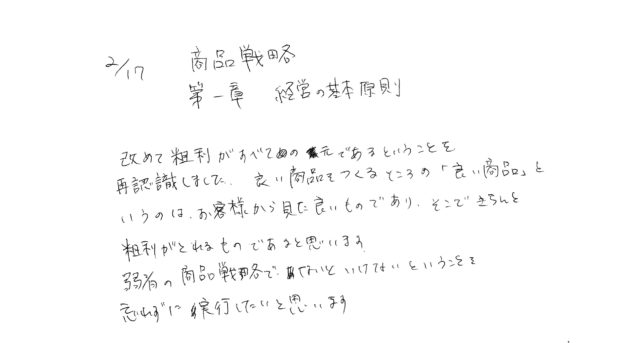 2/17 商品戦略
第一章 経営の基本原則
改めて粗利がすべての元であるということを
再認識しました。良い商品をつくるところの「良い商品」と
いうのは、お客様から見た良いものであり、そこできちんと
粗利がとれるものであると思います
弱者の商品戦略でないといけないということを
忘れずに実行したいと思います